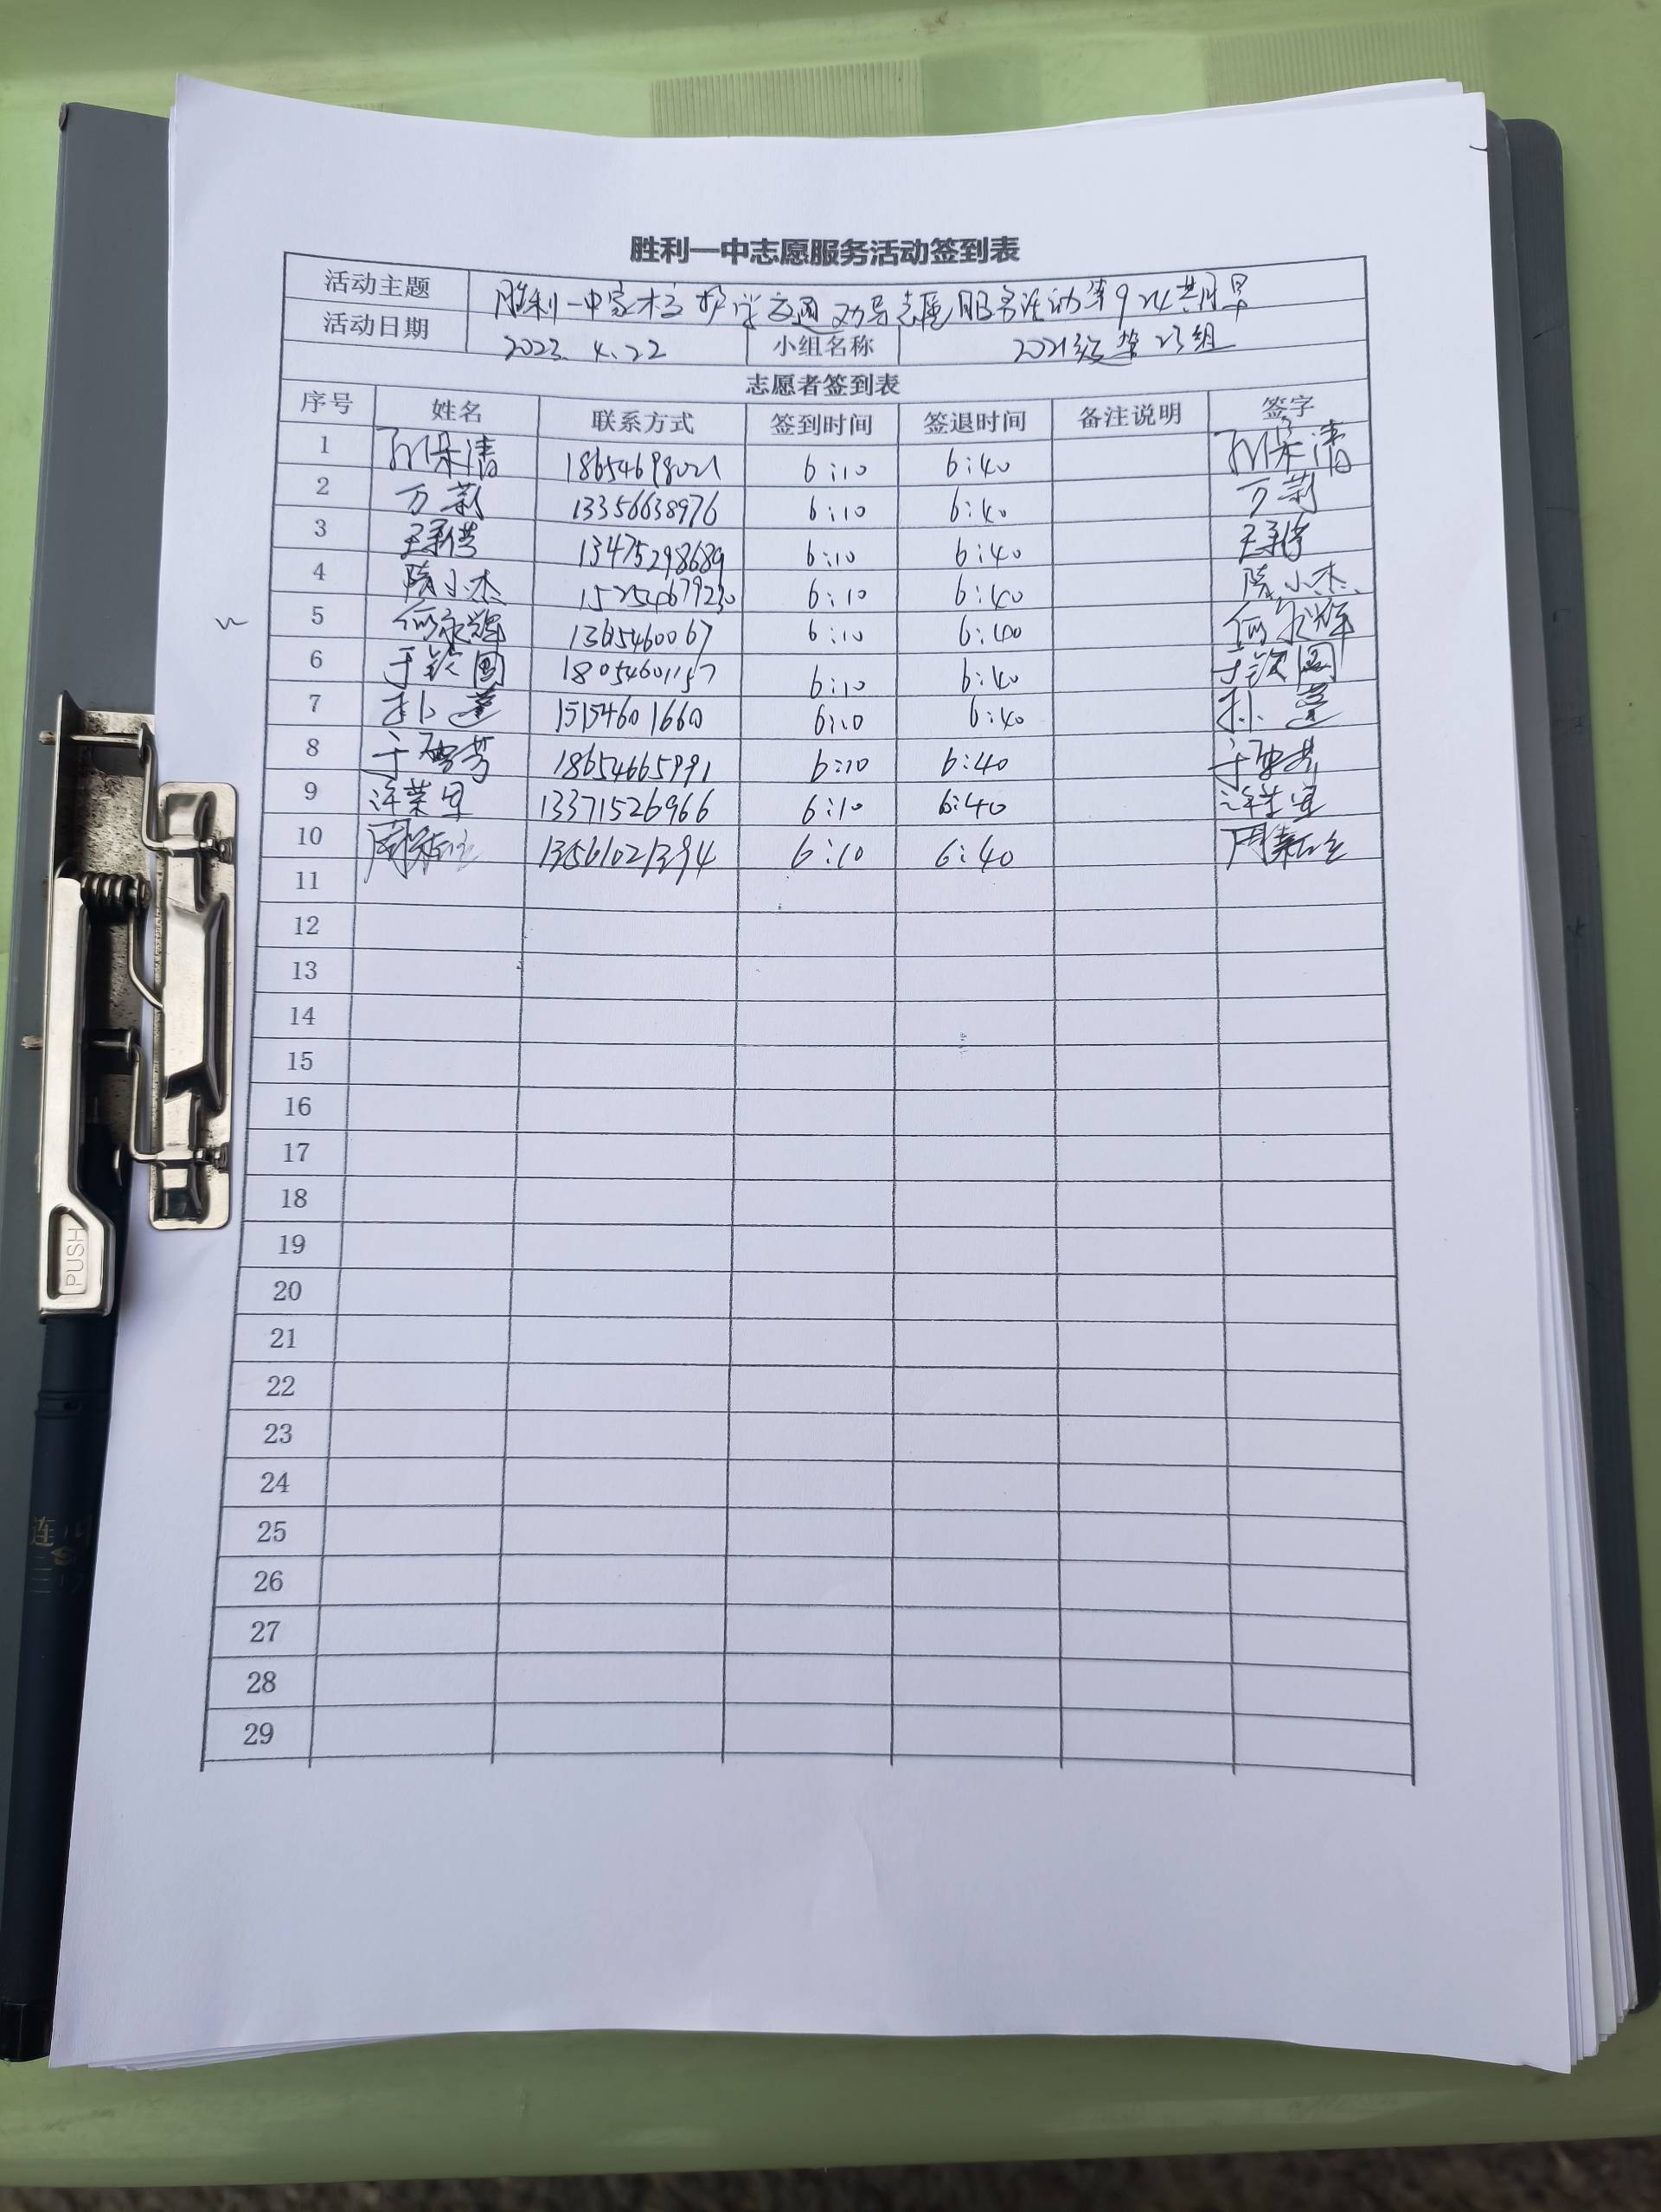 胜利一中志愿服务活动签到表
活动主题 胜利一中家校护学交通劝导志愿服务活动第924共同早
活动日期 2023.4.22 小组名称 2021级第23组
志愿者签到表
序号 姓名 联系方式 签到时间 签退时间 备注说明 签字
1 18654698021 6:10 6:40
2 万莉 13356638976 6:10 6:40 万莉
3 13475298689 6:10 6:40
4 隋小杰 15254679230 6:10 6:40 隋小杰
5 何永辉 1365460067 6:10 6:40 何永辉
6 于钦国 18054601157 6:10 6:40 于钦国
7 孙莲 15154601660 6:10 6:40 孙莲
8 18654665991 6:10 6:40
9 13371526966 6:10 6:40
10 13561021394 6:10 6:40
11
12
13
14
15
16
17
18
19
20
21
22
23
24
25
26
27
28
29
PUSH